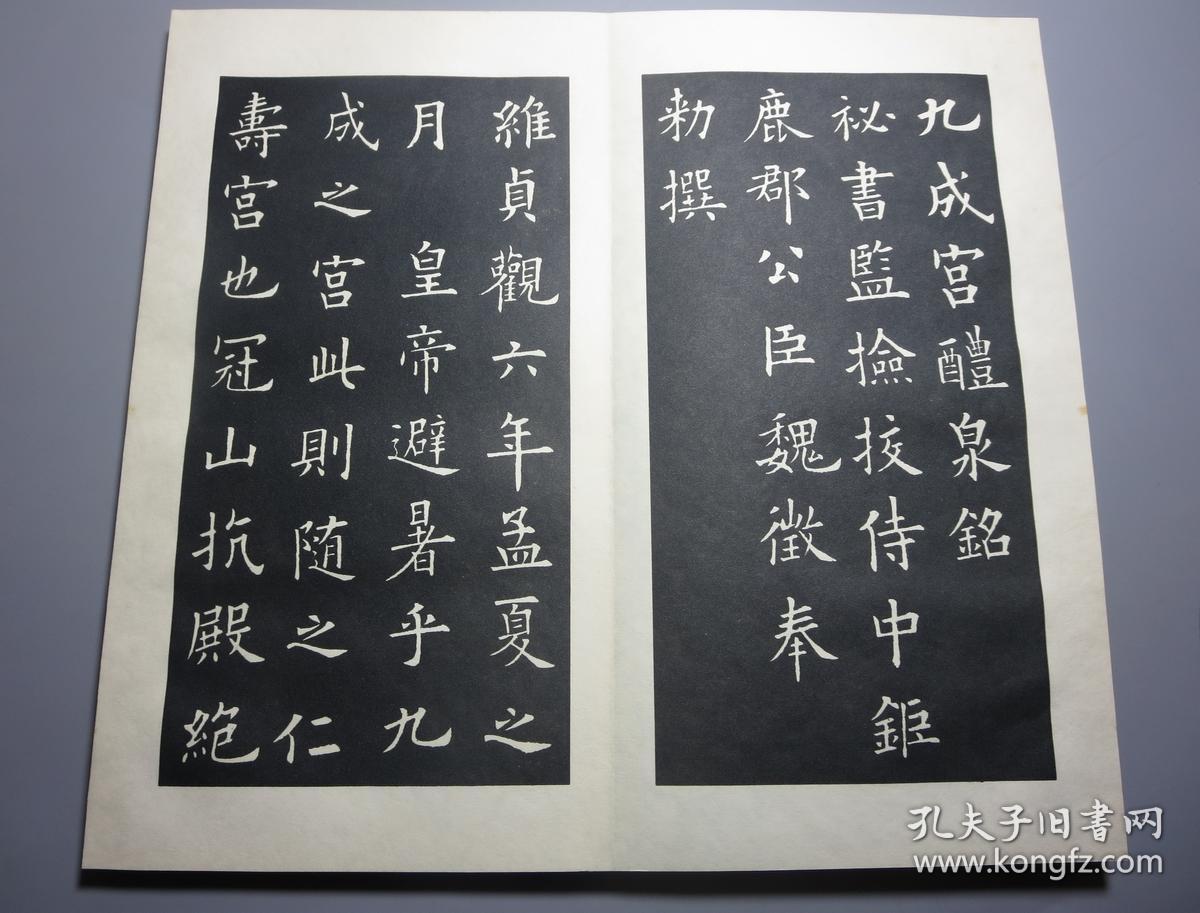 九成宫醴泉銘
祕書監撿挍侍中鉅
鹿郡公臣魏徵奉
勑撰
維貞觀六年孟夏之
月皇帝避暑乎九
成之宫此則随之仁
壽宫也冠山抗殿絶
孔夫子旧書网
www.kongfz.com